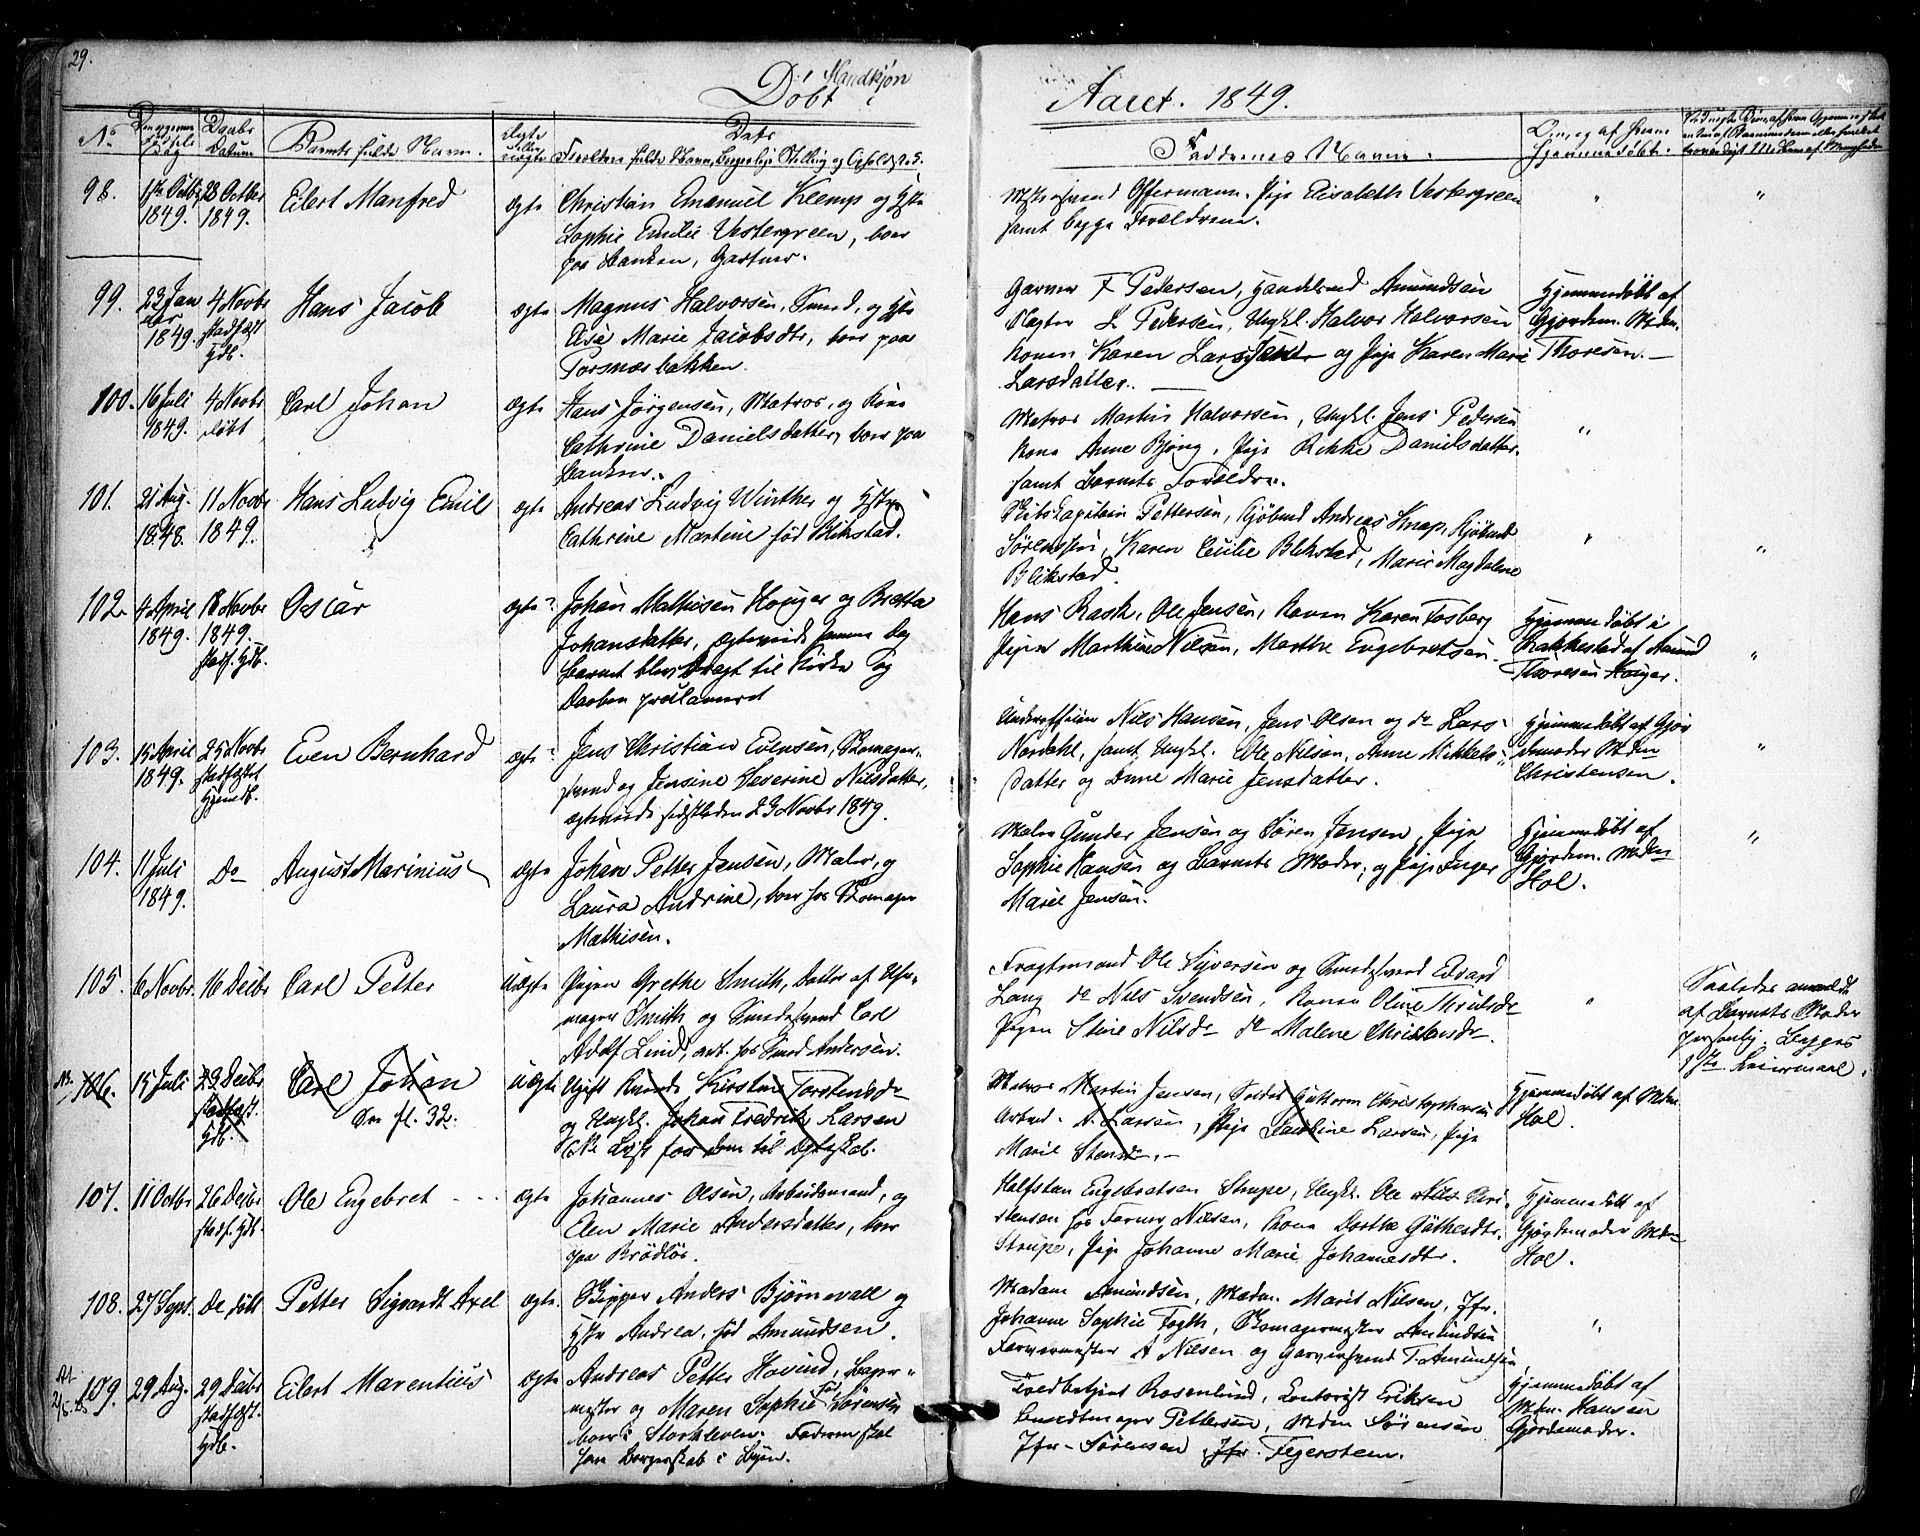 29.
Døbt Mandkjøn
Aaret. 1849.
No
Daabs Datum
Barnets fulde Navn.
Ægte eller uægte
Dets
Forældres fulde Navn, borgerlige Stilling og Opholdssted.
Faddernes Navne.
Om, og af hvem hjemmedøbt.
98.
1849.
28 October 1849.
Eilert Manfred
ægte
Christian Emanuel Klemp og Hstr
Sophie Emilie Vestergreen, boer
paa Banken, Gartner.
Offermann. Pige Elisabeth Vestergreen
samt begge Forældrene.
"
"
99.
23 Januar 1849.
4 Novbr stadfæst Hdb.
Hans Jacob
ægte
Magnus Halvorsen, Smed, og Hstr
Elise Marie Jacobsdtr, boer paa
Porsnæsbakken.
Garver F Pedersen, Handelsmd Amundsen
Slagter L Pedersen, Ungkl. Halvor Halvorsen
Konen Karen Larsdatter og Pige Karen Marie
Larsdatter.
Hjemmedøbt af
Gjordem. Mdm.
Thoresen.
100.
16 Juli 1849.
4 Novbr døbt
Carl Johan
ægte
Hans Jørgensen, Matros, og Kone
Cathrine Danielsdatter, boer paa
Banken.
Matros Martin Halvorsen, Ungkl. Jens Pedersen
Kone Anne Bjöng, Pige Rikke Danielsdatter.
samt Barnets Forældre.
"
101.
21 Aug. 1848.
11 Novbr 1849.
Hans Ludvig Emil
ægte
Andreas Ludvig Winther og Hstr
Cathrine Martine fød Blikstad.
Skibs Capitain Pettersen, Kjøbmd Andreas Knap, Kjøbmd
Sørensen, Karen Cecilie Blikstad, Marie Magdalene
Blikstad.
"
"
102.
4 April 1849.
18 Novbr 1849. stadf. Hdb.
Oscar
ægte?
Johan Mathisen Houger og Bretta
Johansdatter, ægteviede samme Dag
Barnet blev bragt til Kirke og
Daaben proclameret
Hans Rask, Ole Jensen, Konen Karen Fosberg
Pigen Marthine Nilsen, Marthe Engebretsen.
Hjemmedøbt i
Rakkestad af Amund
Thoresen Houger.
"
103.
15 April 1849.
25 Novbr stadfæstet Hjemdb.
Even Bernhard
ægte?
Jens Christian Evensen, Skomager-
svend og Jensine Severine Nilsdatter,
ægteviede sidstleden 23 Novbr 1849.
Underofficier Nils Hansen, Jens Olsen og do Lars
Nordahl, samt Ungkl. Ole Nilsen, Anne Mikkels-
datter og Anne Marie Jensdatter.
Hjemmedøbt af Gjor
demoder Mdm
Christensen.
"
104.
11 Juli 1849.
Do
August Marinius
ægte
Johan Petter Jensen, Maler, og
Laura Andrine, boer hos Skomager
Mathisen.
Maler Gunder Jensen og Søren Jensen, Pige
Sophie Hansen og Barnets Moder, og Pige Inger
Marie Jensen.
Hjemmedøbt af
Gjordem. Mdm
Hol.
"
105.
6 Novbr.
16 Decbr
Carl Petter
Uægte
Pigen Grethe Smith, Datter af Uhr-
mager Smith og Smedesvend Carl
Adolf Lind, arb. hos Smed Andersen.
Fragtemand Ole Syversen og Smedesvend Edvard
Lang do Nils Svendsen, Konen Oline Thrulsdr
Pigen Stine Nilsdr do Malene Christensdr.
"
Saaledes anmeldt
af Barnets Moder
personlig. Begges
1ste Leiermaal.
NB. 106.
15 Juli
23 Decbr stadfæst. Hdb.
Carl Johan
See fl. 32.
Uægte
Ugift Kirstine Torstensdr
og Ungkl. Johan Fredrik Larsen
for dem til Ægteskab.
Matros Martin Jensen, Soldat Guttorm Christophersen
Arbmd. A. Larsen, Pige Karoline Larsen, Pige
Marie Stensdr.
Hjemmedøbt af Mdm.
Hol.
107.
11 Octbr
26 Decbr stadf. Hdb
Ole Engebret
ægte
Johannes Olsen, Arbeidsmand, og
Elen Marie Andersdatter, boer
paa Brödlös.
Halfstan Engebretsen Strupe, Ungkl. Ole Nils Chri-
stensen hos Farver Nilsen, Kone Dorthe Guthersdtr.
Strupe, Pige Johanne Marie Johannesdtr.
Hjemmedøbt af
Gjordemoder Mdm
Hol.
108.
27 Septr.
Do døbt
Petter Sigvardt Axel
ægte.
Skipper Anders Bjørnevall og
Hstr Andrea, fød Amundsen.
Madam Amundsen, Madm. Marit Nilsen, Jfr.
Johanne Sophie Fogth, Skomagermester Amundsen
Farvermester A Nilsen og Garversvend T. Amundsen
"
109.
29 Aug.
29 Decbr stadfæst. Hdb.
Eilert Marentius
ægte
Andreas Petter Hovind, Bager-
mester og Maren Sophie fød Sørensen
boer i Storkleven. Faderen skal
have Borgerskab i Byen.
Tredbetjent Rosenlund, Contorist Eriksen
Bundtmager Pettersen, Mdm Sörensen
Jfr. Sørensen Jfr. Fegersteen.
Hjemmedøbt af
Mdm. Hansen
Gjordemoder.